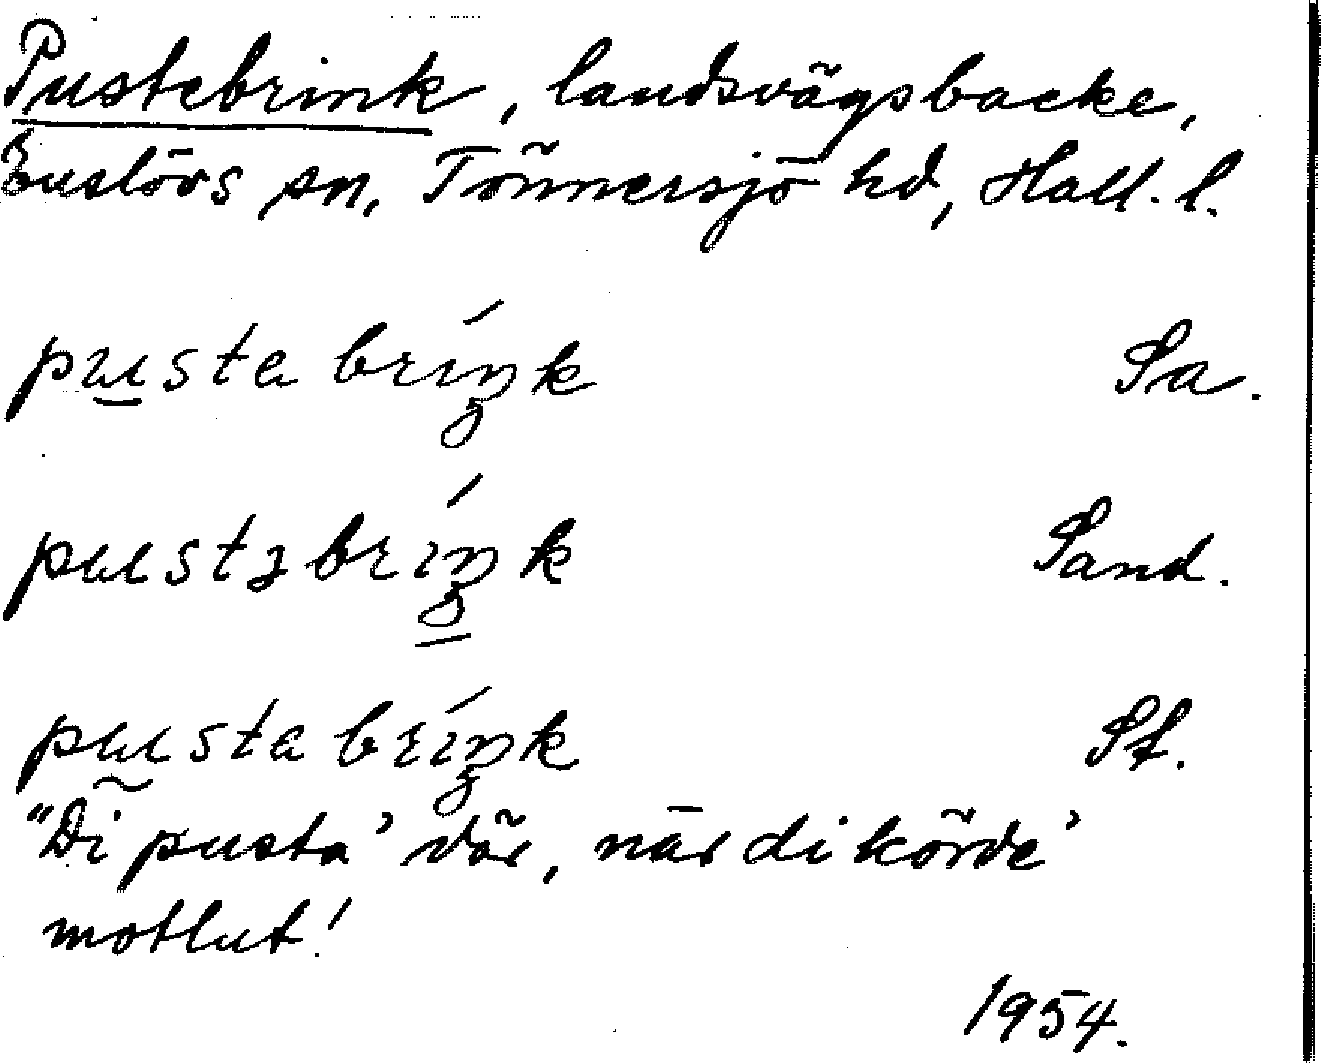 Pustebrink, landsvägsbacke,
Euslövs sn, Tönnersjö hd, Hall. l.
pustabríŋk Sa.
pustəbríŋk Sand.
pustabríŋk St.
"Di pusta' där, när di körde'
motlut!
1954.